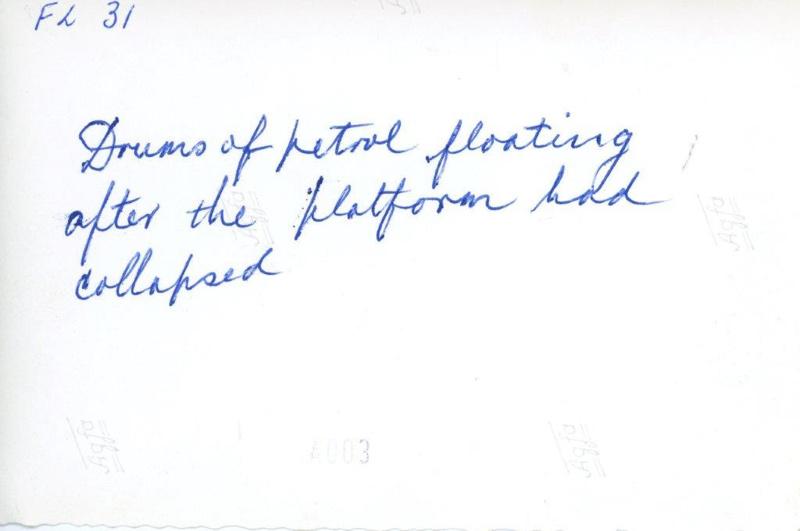 FL 31
Drums of petrol floating
after the platform had
collapsed
Agfa
Agfa
Agfa
Agfa
A003